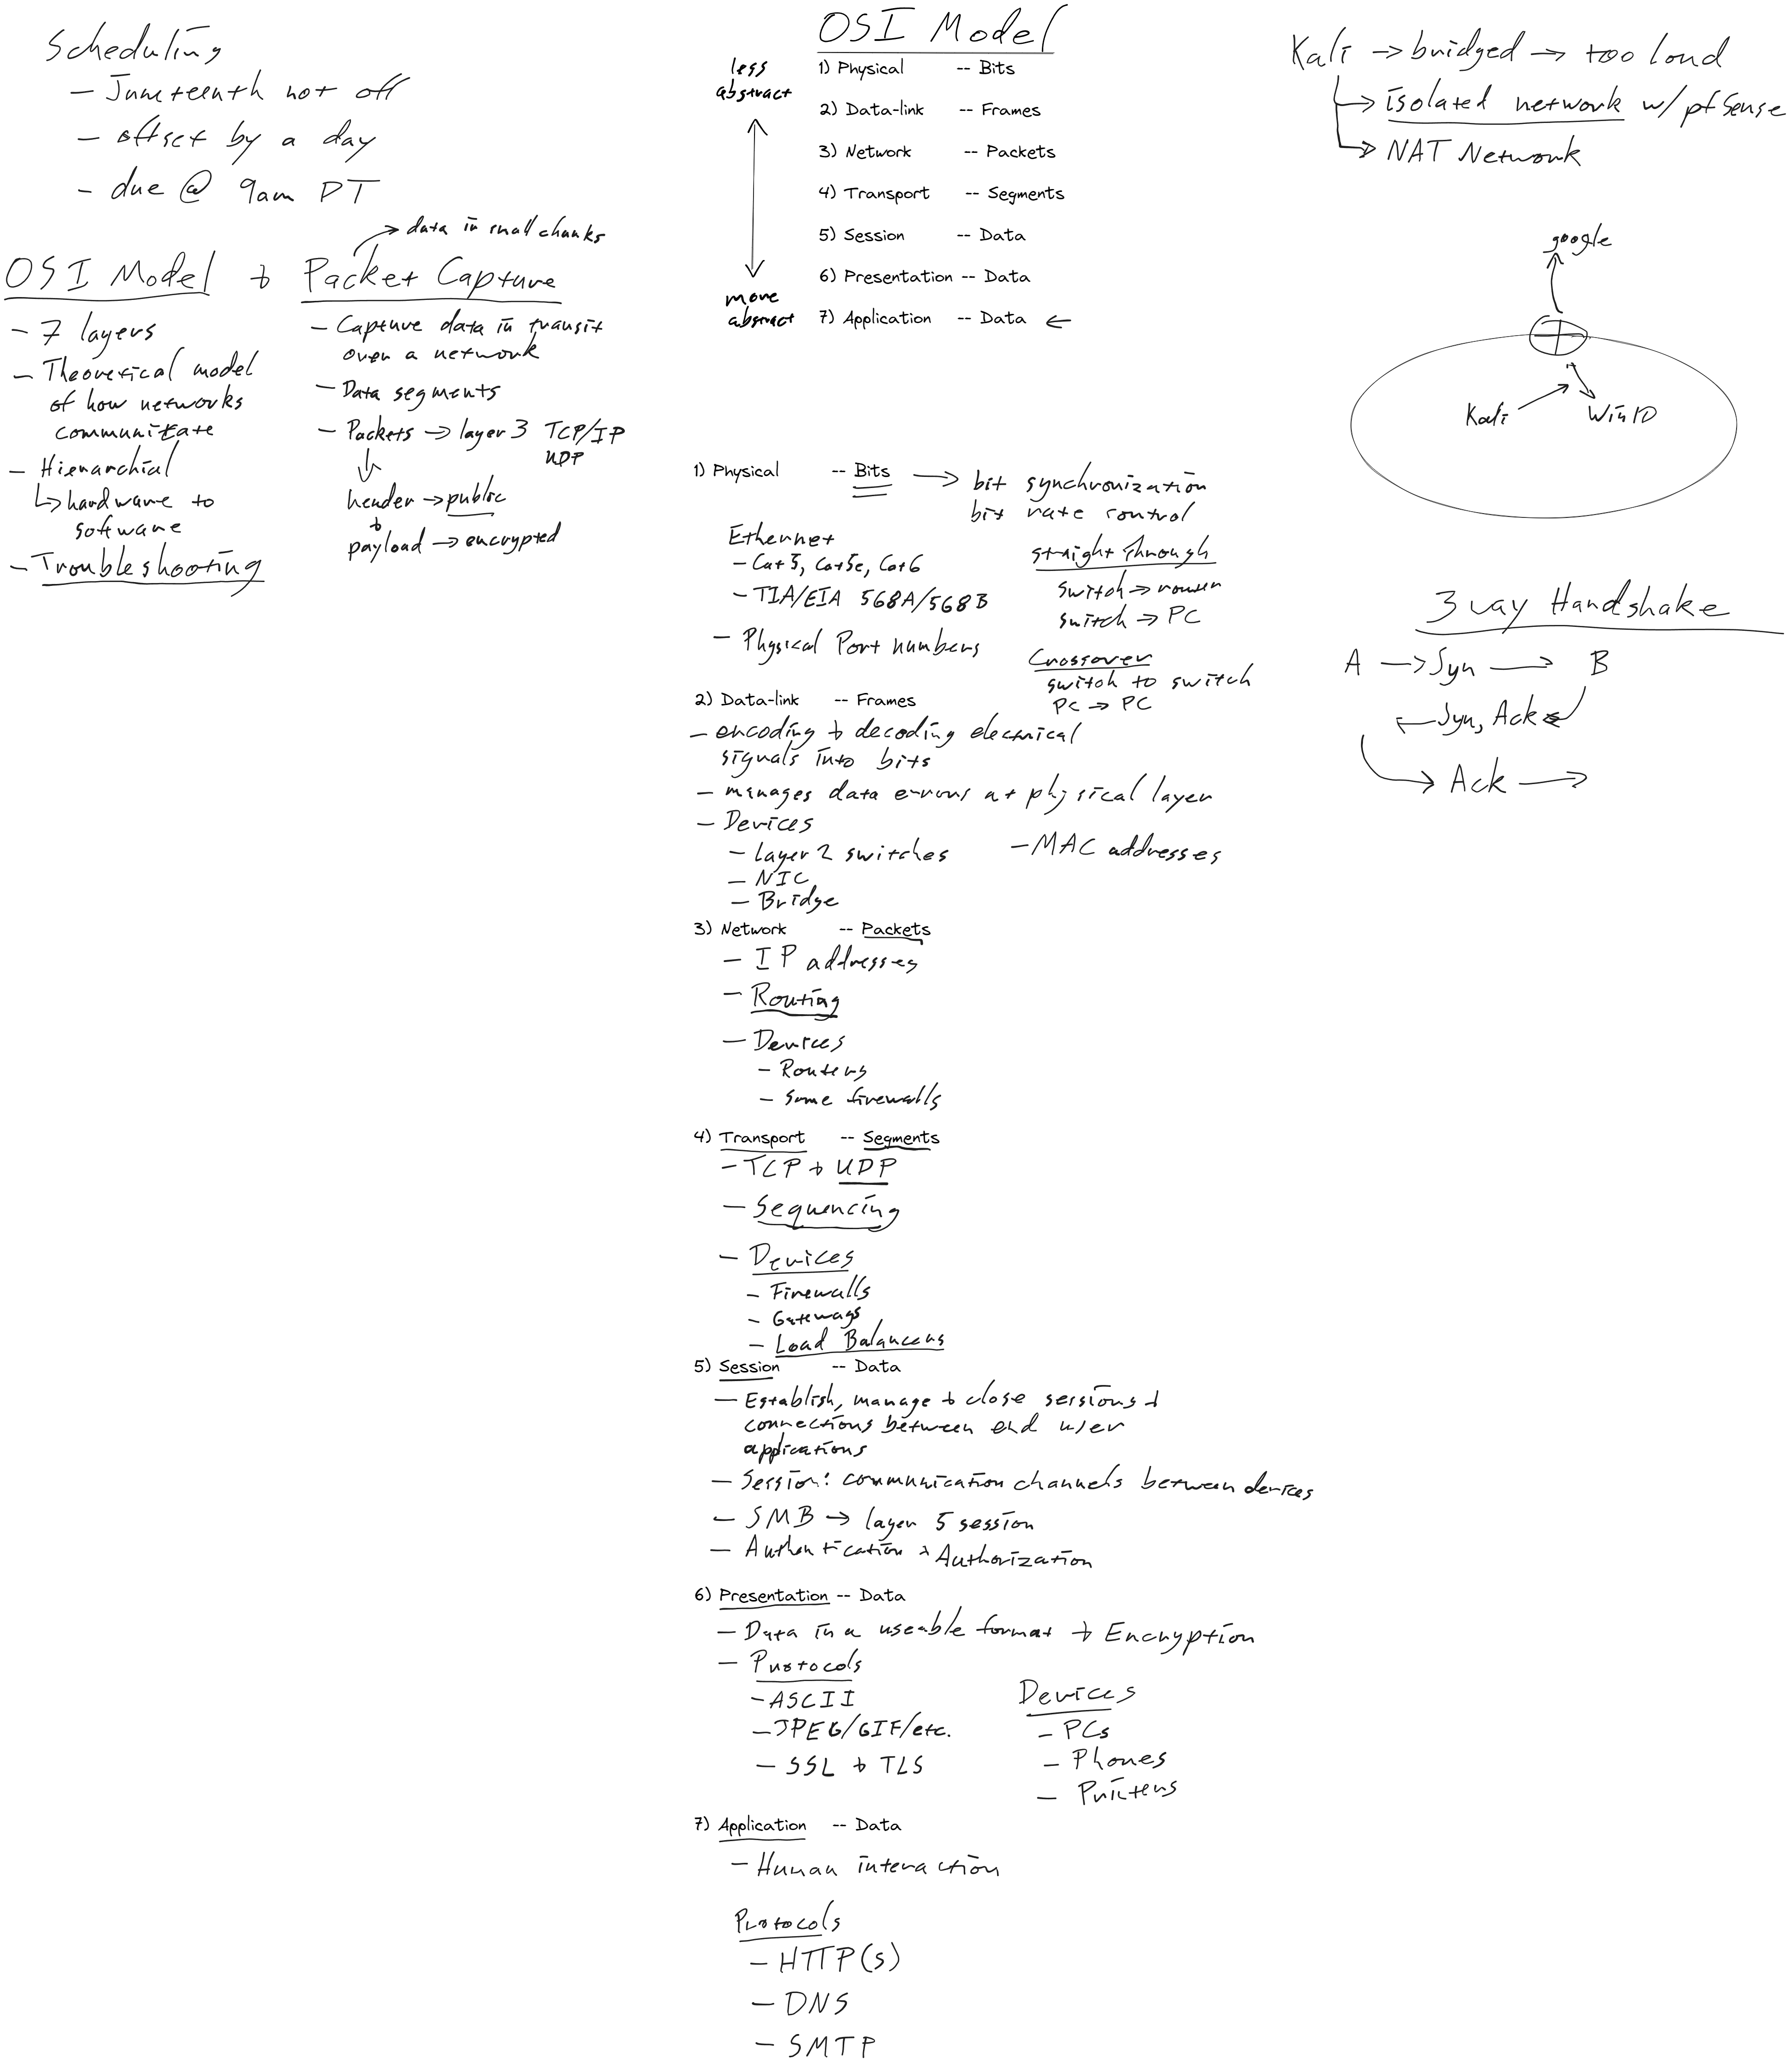 Scheduling
- Juneteenth not off
- offset by a day
- due @ 9am PT
→ data in small chunks
OSI Model + Packet Capture
- 7 layers
- Theoretical model
of how networks
communicate
- Hierarchial
↳ hardware to
software
- Troubleshooting
- Capture data in transit
over a network
- Data segments
- Packets → layer 3 TCP/IP
UDP
header → public
+
payload → encrypted
OSI Model
less
abstract
more
abstract
1) Physical -- Bits
2) Data-link -- Frames
3) Network -- Packets
4) Transport -- Segments
5) Session -- Data
6) Presentation -- Data
7) Application -- Data ←
1) Physical -- Bits → bit synchronization
bit rate control
Ethernet
- Cat5, Cat5e, Cat6
- TIA/EIA 568A/568B
- Physical Port numbers
straight through
switch → router
switch → PC
Crossover
switch to switch
PC → PC
2) Data-link -- Frames
- encoding + decoding electrical
signals into bits
- manages data errors at physical layer
- Devices
- layer 2 switches
- NIC
- Bridge
- MAC addresses
3) Network -- Packets
- IP addresses
- Routing
- Devices
- Routers
- Some firewalls
4) Transport -- Segments
- TCP + UDP
- Sequencing
- Devices
- Firewalls
- Gateways
- Load Balancers
5) Session -- Data
- Establish, manage + close sessions +
connections between end user
applications
- Session: communication channels between devices
- SMB → layer 5 session
- Authentication + Authorization
6) Presentation -- Data
- Data in a useable format + Encryption
- Protocols
- ASCII
- JPEG/GIF/etc.
- SSL + TLS
Devices
- PCs
- Phones
- Printers
7) Application -- Data
- Human interaction
Protocols
- HTTP(s)
- DNS
- SMTP
Kali → bridged → too loud
→ isolated network w/ pfSense
→ NAT Network
google
Kali
Win10
3 way Handshake
A → Syn → B
← Syn, Ack ←
→ Ack →